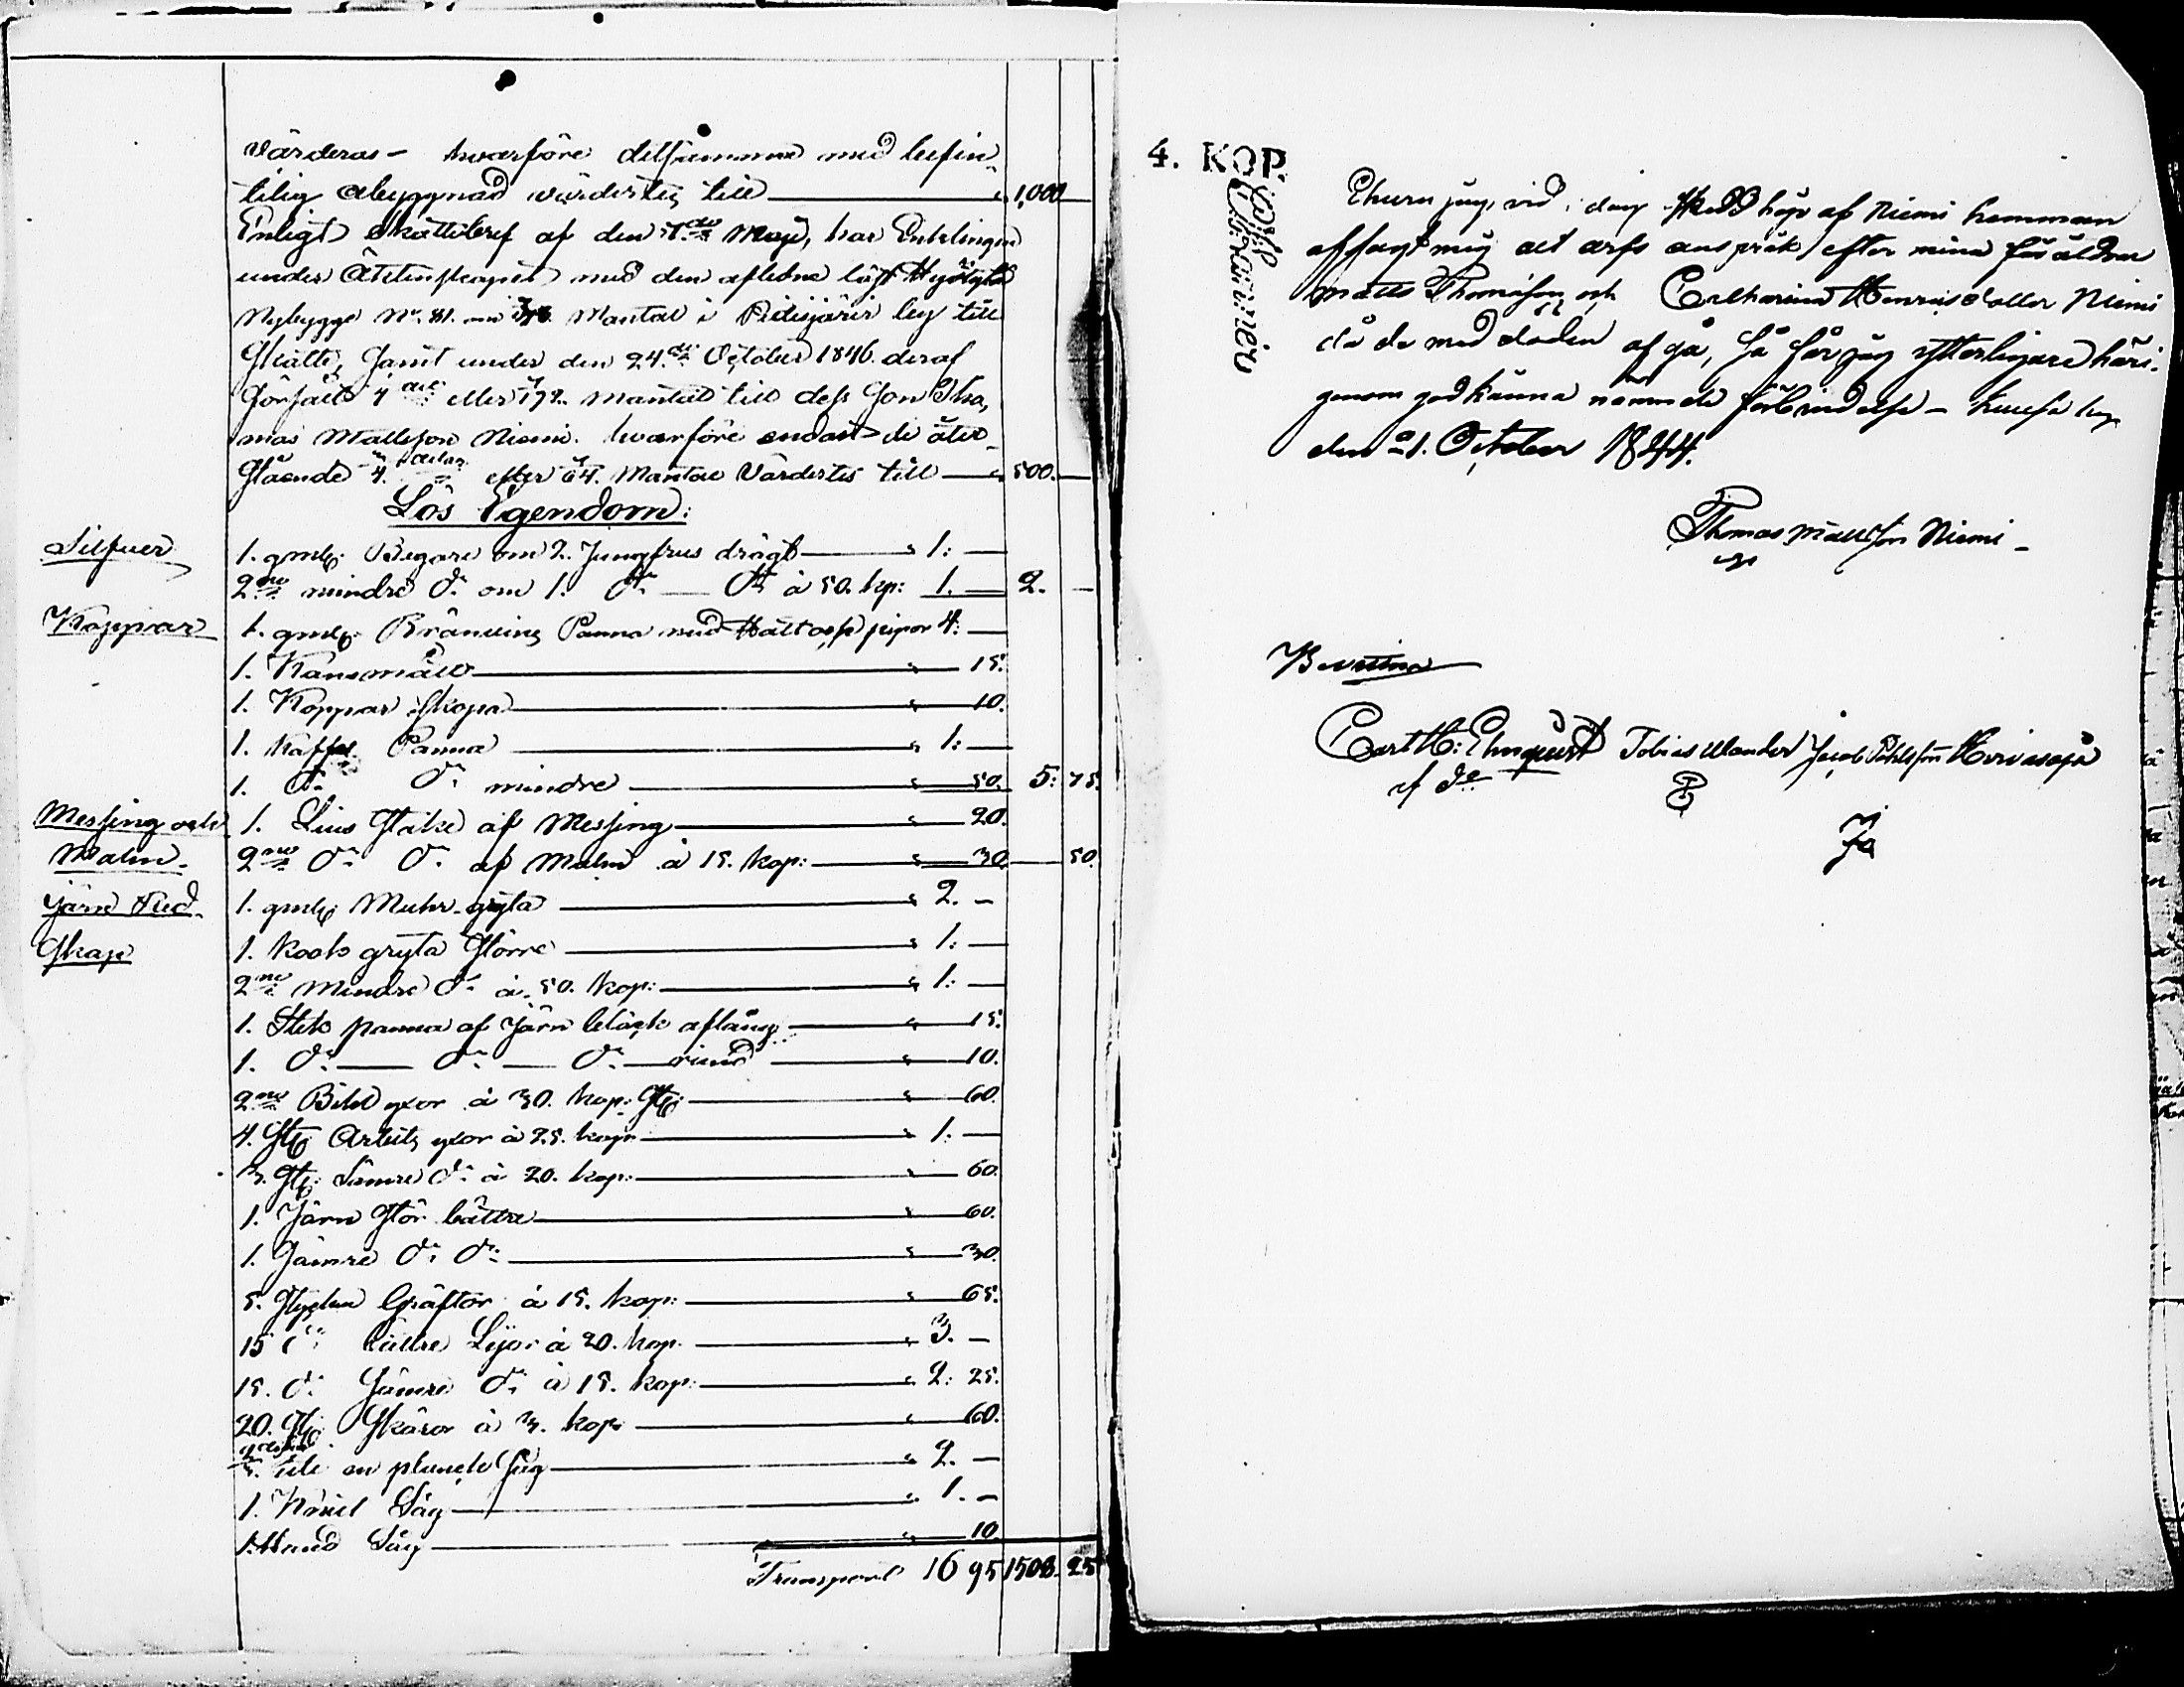 värderas – hwarföre ditsammma med befin
telig åbyggnad värdertes till " 1,000
Enligt skattebref af den 5te Maji, har Enkelingen
under Äktenskapet med den aflidne löst
Nybygge No 81. om Mantal i Pidisjärvi by till
Skatte, Samt under den 24de October 1846. deraf
försålt eller mantal till dess Son Tho,
mas Mattsson Niemi. hwarföre endast de åter
Stående 4. delar eller 64. Mantal Värdertes till " 500.
Lös Egendom:
Silfuer
1. gmlg Begare om 2. Jungfrus drägt " 1: —
2ne mindre do om 1. do — do à 50. kp: 1. — 2. —
Koppar
1. gmlg Bränvins Panna med Hatt och pipor 4: —
1. " 15.
1. Koppar Skopa " 10.
1. Kaffe Panna " 1: —
1. do do mindre " 50. 5: 75.
Messing och
Malm
1. Lius Stake af Messing " 20.
2ne do do af Malm à 15. kop: " 30. 50.
Järn Red-
Skap
1. gmlg Muhr-gryta " 2. –
1. Kook gryta Större " 1: —
2ne Mindre do à 50. kop: " 1: —
1. Stek panna af Järn bläck aflång " 15.
1. do — do — do — rund " 10.
2ne Bihl yxor à 30. kop: St: " 60.
4. St: Arbets yxor à 25. kop: " 1: —
3. St: Sämre do à 20. kop: " 60.
1. Järn Stör bättre " 60.
1. Sämre do do " 30.
5. Stycken Gräftor à 15. kop: " 65.
15 do bättre Lijor à 20. kop. " 3. –
15. do Sämre do à 15. kop: " 2: 25.
20. St: Skäror à 3. kop: " 60.
uti en planck Såg " 2. –
1. Såg " 1. –
1. Hand Såg " 10.
Transport 16 95 1508. 25
4. KOP.
Ehuru jag, vid i dag skedd köp af Niemi hemman
afsagt mig alt arfs anspråk efter mina föräldrar
Matts Thomasson och Catharina Henricsdotter Niemi
då de med döden afgå, så får jag ytterligare häri-
genom godkänna nämnde förbindelse –
den 21. October 1844.
Thomas Mattsson Niemi –
Bevittna
Carl H: Ehnqvist Tobias Ulander Jacob Påhlsson Hirvasoja